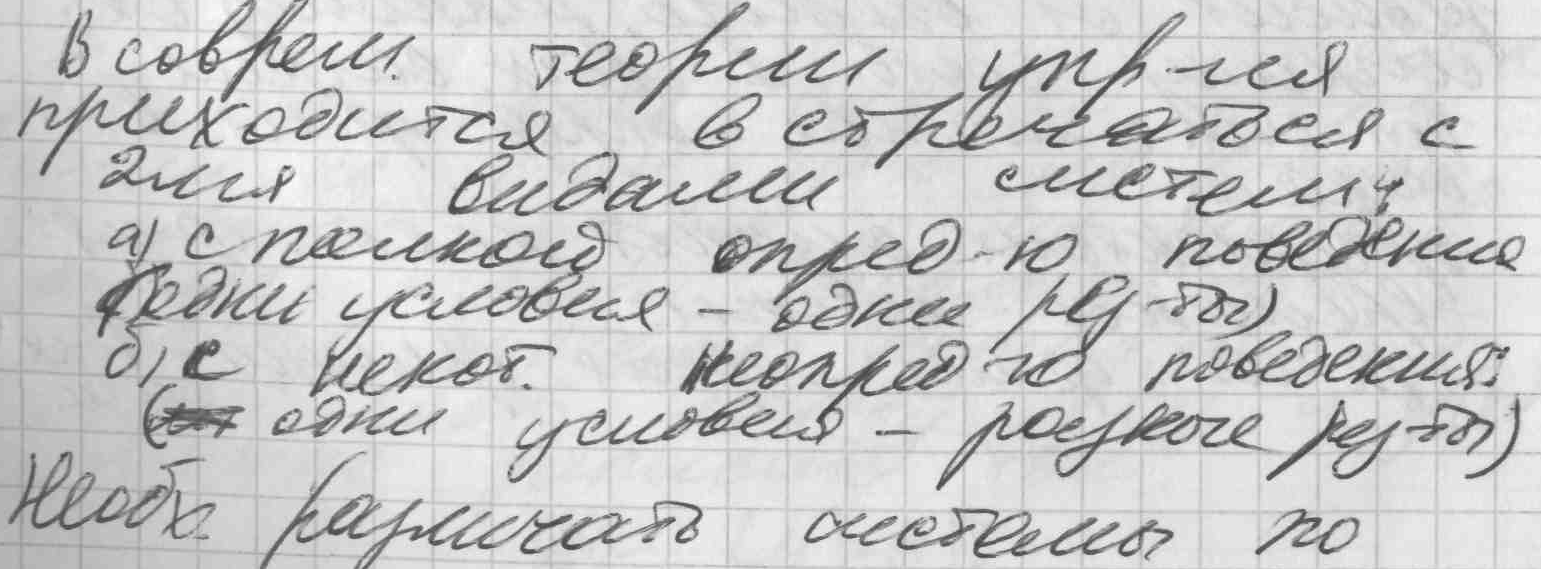 В соврем. теории упр-ния
приходится встречаться с
2мя видами систем:
а) с полной опред-ю поведения
(одни условия – одни рез-ты)
б) с некот. неопред-ю поведения:
( одни условия – разные рез-ты)
Необх. различать системы по